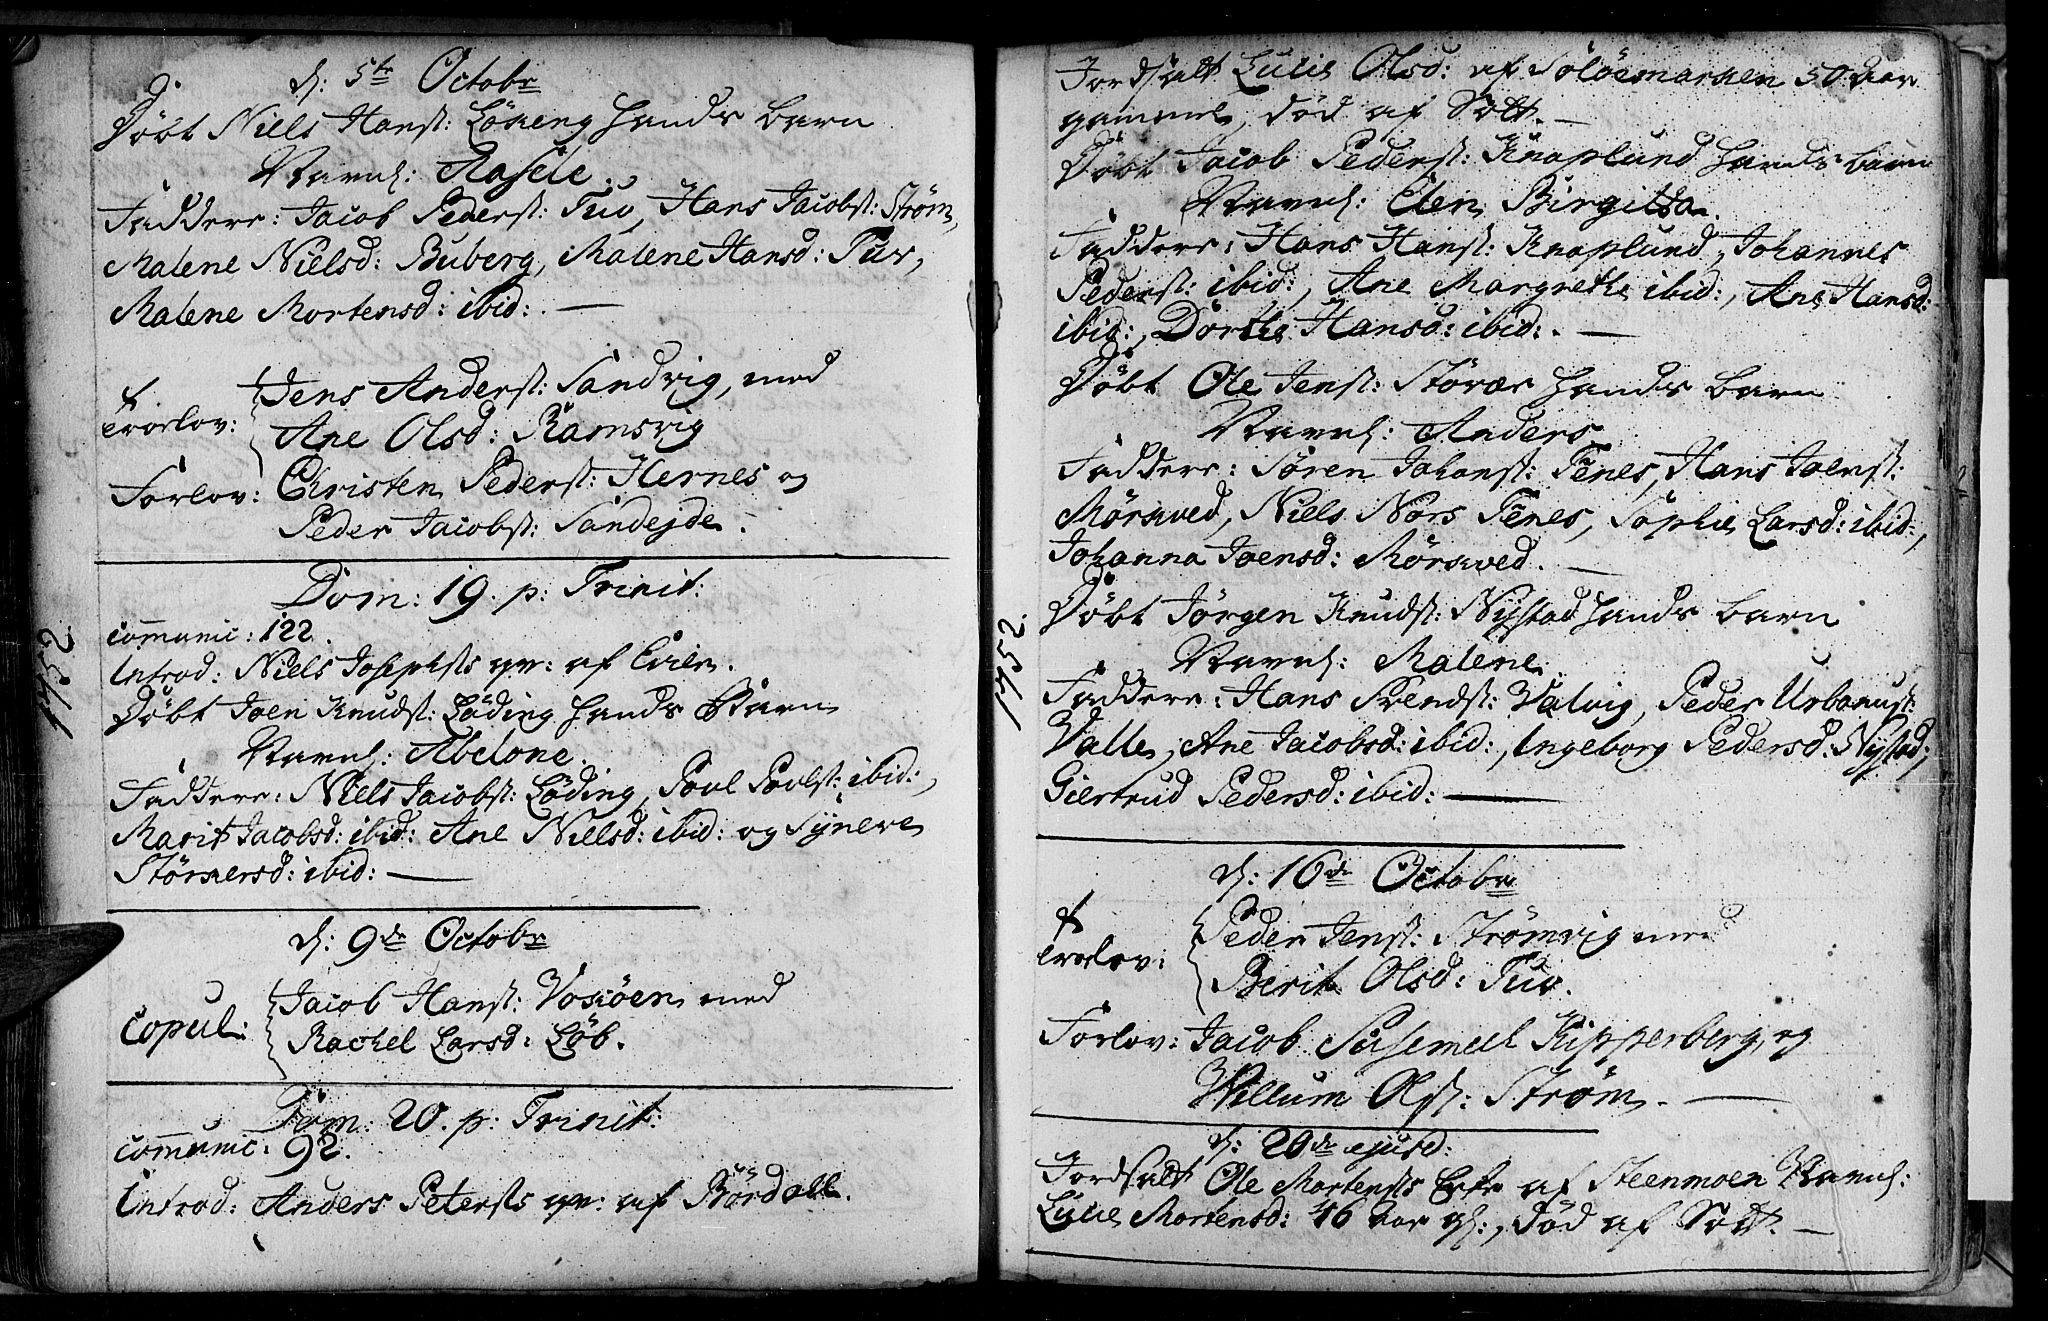 d: 5te Octobr
Döbt Niels Hansf: Löseng Hands Barn
Navnl: Rasele.
Faddere: Jacob Pedersf: Tuv, Hans Jacobsf: Strøm,
Malene Nielsd: Buberg, Malene Hansd: Tuv,
Malene Mortensd: ibid:. —
Trorlov: Jens Andersf: Sandvig, med
Ane Olsd: Ramsvig
Forlov: Christen Pedersf: Hernes og
Peder Jacobsf: Sandejde.
Dom: 19. p: Trinit:
communic: 122.
Introd: Niels Josephsfs qv: af Evien.
Döbt Joen Knudsf: Löding Hands Barn
Navnl: Abelone.
Faddere: Niels Jacobsf: Löding, Povl Povlsf: ibid:,
Marit Jacobsd: ibid: Ane Nielsd: ibid: og Syneve
Störkersd: ibid: —
1752
d: 9de Octobr
Copul: Jacob Hansf: Voskøen med
Rachel Larsd: Løb.
Dom: 20. p: Trinit:
communic: 92.
Introd: Anders Petersfs qv: af Bördall.
Jordfält Lucie Olsd: af Soløemarken 50 aar
gammel, död af Sott. —
Döbt Jacob Pedersf: Knaplund Hands barn
Navnl: Elen Birgitta.
Faddere: Hans Hansf: Knaplund, Johannes
Pedersf: ibid:, Ane Margrethe ibid:, Ane Hansd:
ibid:, Dorthe Hansd: ibid:. —
Döbt Ole Jensf: Støvær Hands barn
Navnl: Anders
Faddere: Søren Johansf: Fenes, Hans Joensf:
Mörkved, Niels Nörs Fenes, Sophie Larsd: ibid:,
Johanna Joensd: Mörkved. —
Döbt Jörgen Knudsf: Nystad Hands barn
Navnl: Malene
Faddere: Hans Svendsf: Valvig, Peder Urbanusf:
Valle, Ane Jacobsd: ibid:, Ingeborg Pedersd: Nystad,
Giertrud Pedersd: ibid: —
1752.
d: 16de Octobr
Trorlov: Peder Jensf: Strømvig med
Berit Olsd: Tuv.
Forlov: Jacob Kipperberg, og
Willum Olsf: Strøm. —
d: 20de ejusd:
Jordfält Ole Mortensfs Enke af Steenmoen Navnl:
Lucie Mortensd: 46 aar gl:, död af Sott. —